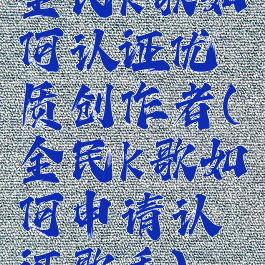 全民k歌如
何认证优
质创作者(
全民k歌如
何申请认
证歌手)